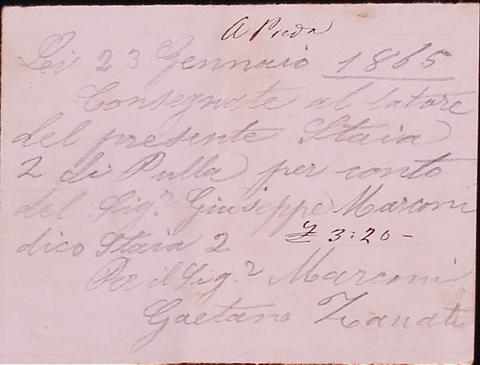 A Preda
Li 23 Gennaio 1865
Consegnate al latore
del presente Staia
2 di Pulla per conto
del Sig.r Giuseppe Marconi
dico Staia 2 £ 3:20-
Per il Sig.r Marconi
Gaetano Zanati